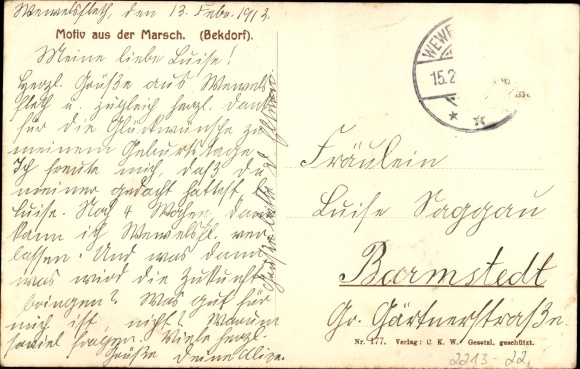 Wewelsfleth, den 13. Febr. 1912.
Motiv aus der Marsch. (Bekdorf).
Meine liebe Luise!
Herzl. Grüße aus Wewels-
fleth u. zugleich herzl. Dank
für die Glückwünsche zu
meinem Geburtstage.
Ich freute mich, daß du
meiner gedacht hattest l.
Luise. Noch 4 Wochen, dann
kann ich Wewelsfl. ver-
lassen. Und was dann,
was wird die Zukunft
bringen? Was gut für
mich ist, nicht? Warum
soviel fragen. Viele herzl.
Grüße Deine Alize.
WEWE
15.2
Fräulein
Luise Saggau
Barmstedt
Gr. Gärtnerstraße.
Nr. 177. Verlag: U. K. W. Gesetzl. geschützt.
2213-22,